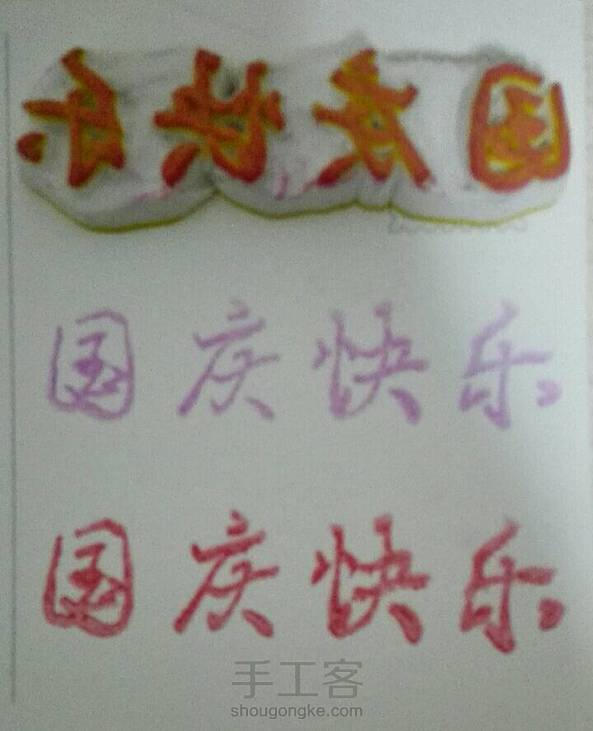 国庆快乐
国庆快乐
国庆快乐
手工客
shougongke.com